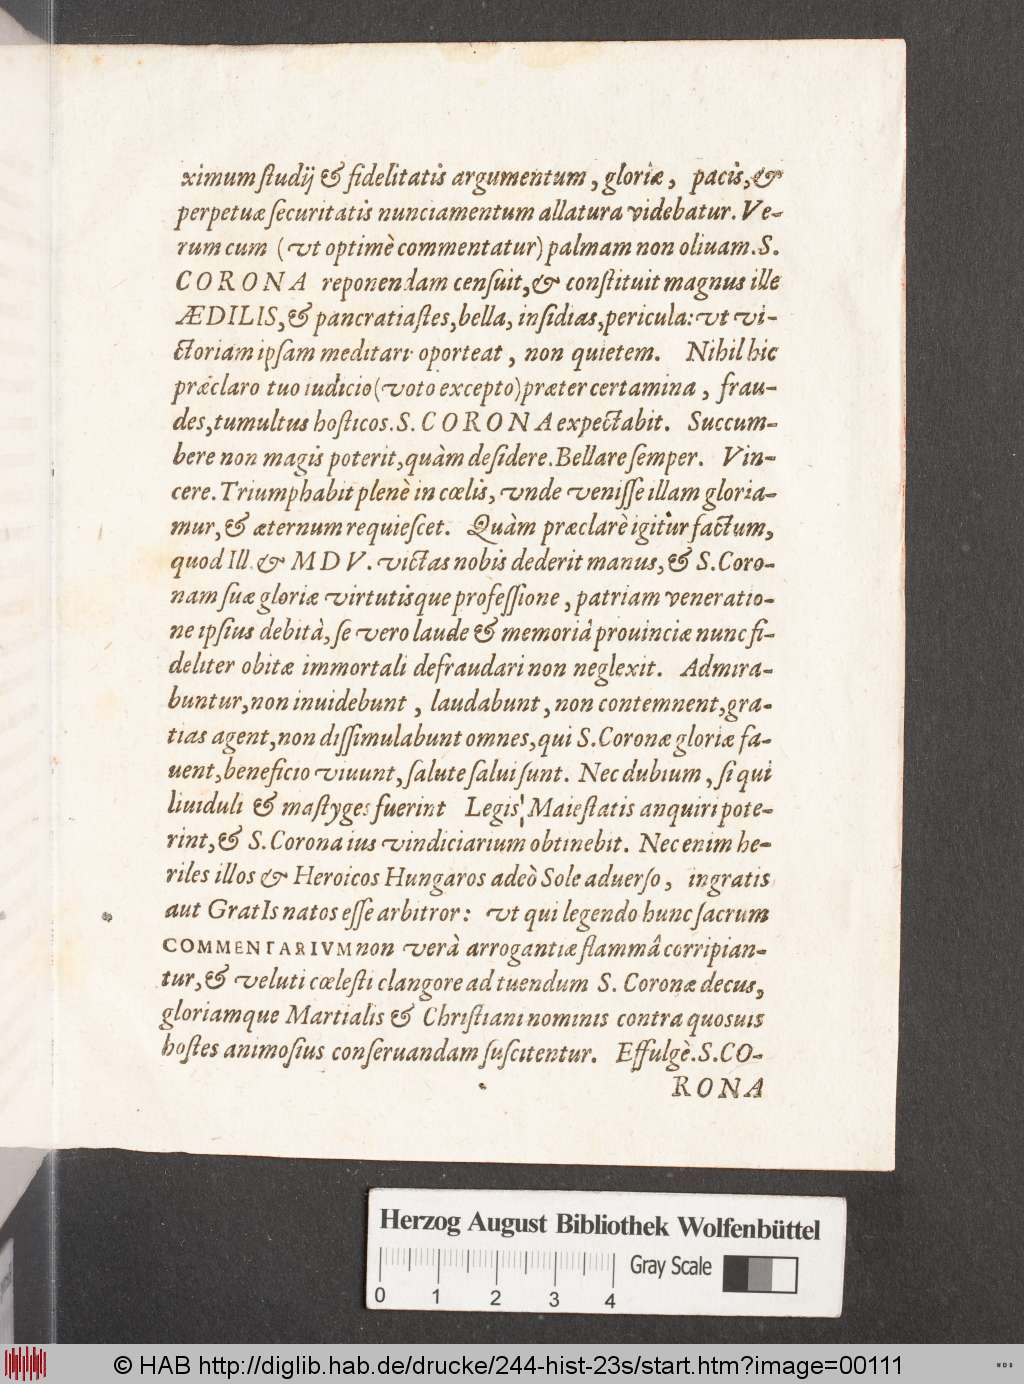 ximum ſtudij & fidelitatis argumentum, gloriæ, pacis, &
perpetuæ ſecuritatis nunciamentum allatura videbatur. Ve-
rum cum (vt optimè commentatur) palmam non oliuam. S.
CORONA reponendam cenſuit, & conſtituit magnus ille
ÆDILIS, & pancratiaſtes, bella, inſidias, pericula: vt vi-
ctoriam ipſam meditari oporteat, non quietem. Nihil hic
præclaro tuo iudicio (voto excepto) præter certamina, frau-
des, tumultus hoſticos. S. CORONA expectabit. Succum-
bere non magis poterit, quàm deſidere. Bellare ſemper. Vin-
cere. Triumphabit plenè in cœlis, vnde veniſſe illam gloria-
mur, & æternum requieſcet. Quàm præclarè igitur factum,
quod Ill. & MDV. victas nobis dederit manus, & S. Coro-
nam ſuæ gloriæ virtutisque profeſſione, patriam veneratio-
ne ipſius debitâ, ſe vero laude & memoriâ prouinciæ nunc fi-
deliter obitæ immortali defraudari non neglexit. Admira-
buntur, non inuidebunt, laudabunt, non contemnent, gra-
tias agent, non diſſimulabunt omnes, qui S. Coronæ gloriæ fa-
uent, beneficio viuunt, ſalute ſalui ſunt. Nec dubium, ſi qui
liuiduli & maſtyges fuerint Legis Maieſtatis anquiri pote-
rint, & S. Corona ius vindiciarium obtinebit. Nec enim he-
riles illos & Heroicos Hungaros adeò Sole aduerſo, ingratis
aut GratIs natos eſſe arbitror: vt qui legendo hunc ſacrum
COMMENTARIVM non verà arrogantiæ flammâ corripian-
tur, & veluti cœleſti clangore ad tuendum S. Coronæ decus,
gloriamque Martialis & Chriſtiani nominis contra quosuis
hoſtes animoſius conſeruandam ſuſcitentur. Effulgè. S. CO-
RONA
Herzog August Bibliothek Wolfenbüttel
Gray Scale
0 1 2 3 4
© HAB http://diglib.hab.de/drucke/244-hist-23s/start.htm?image=00111